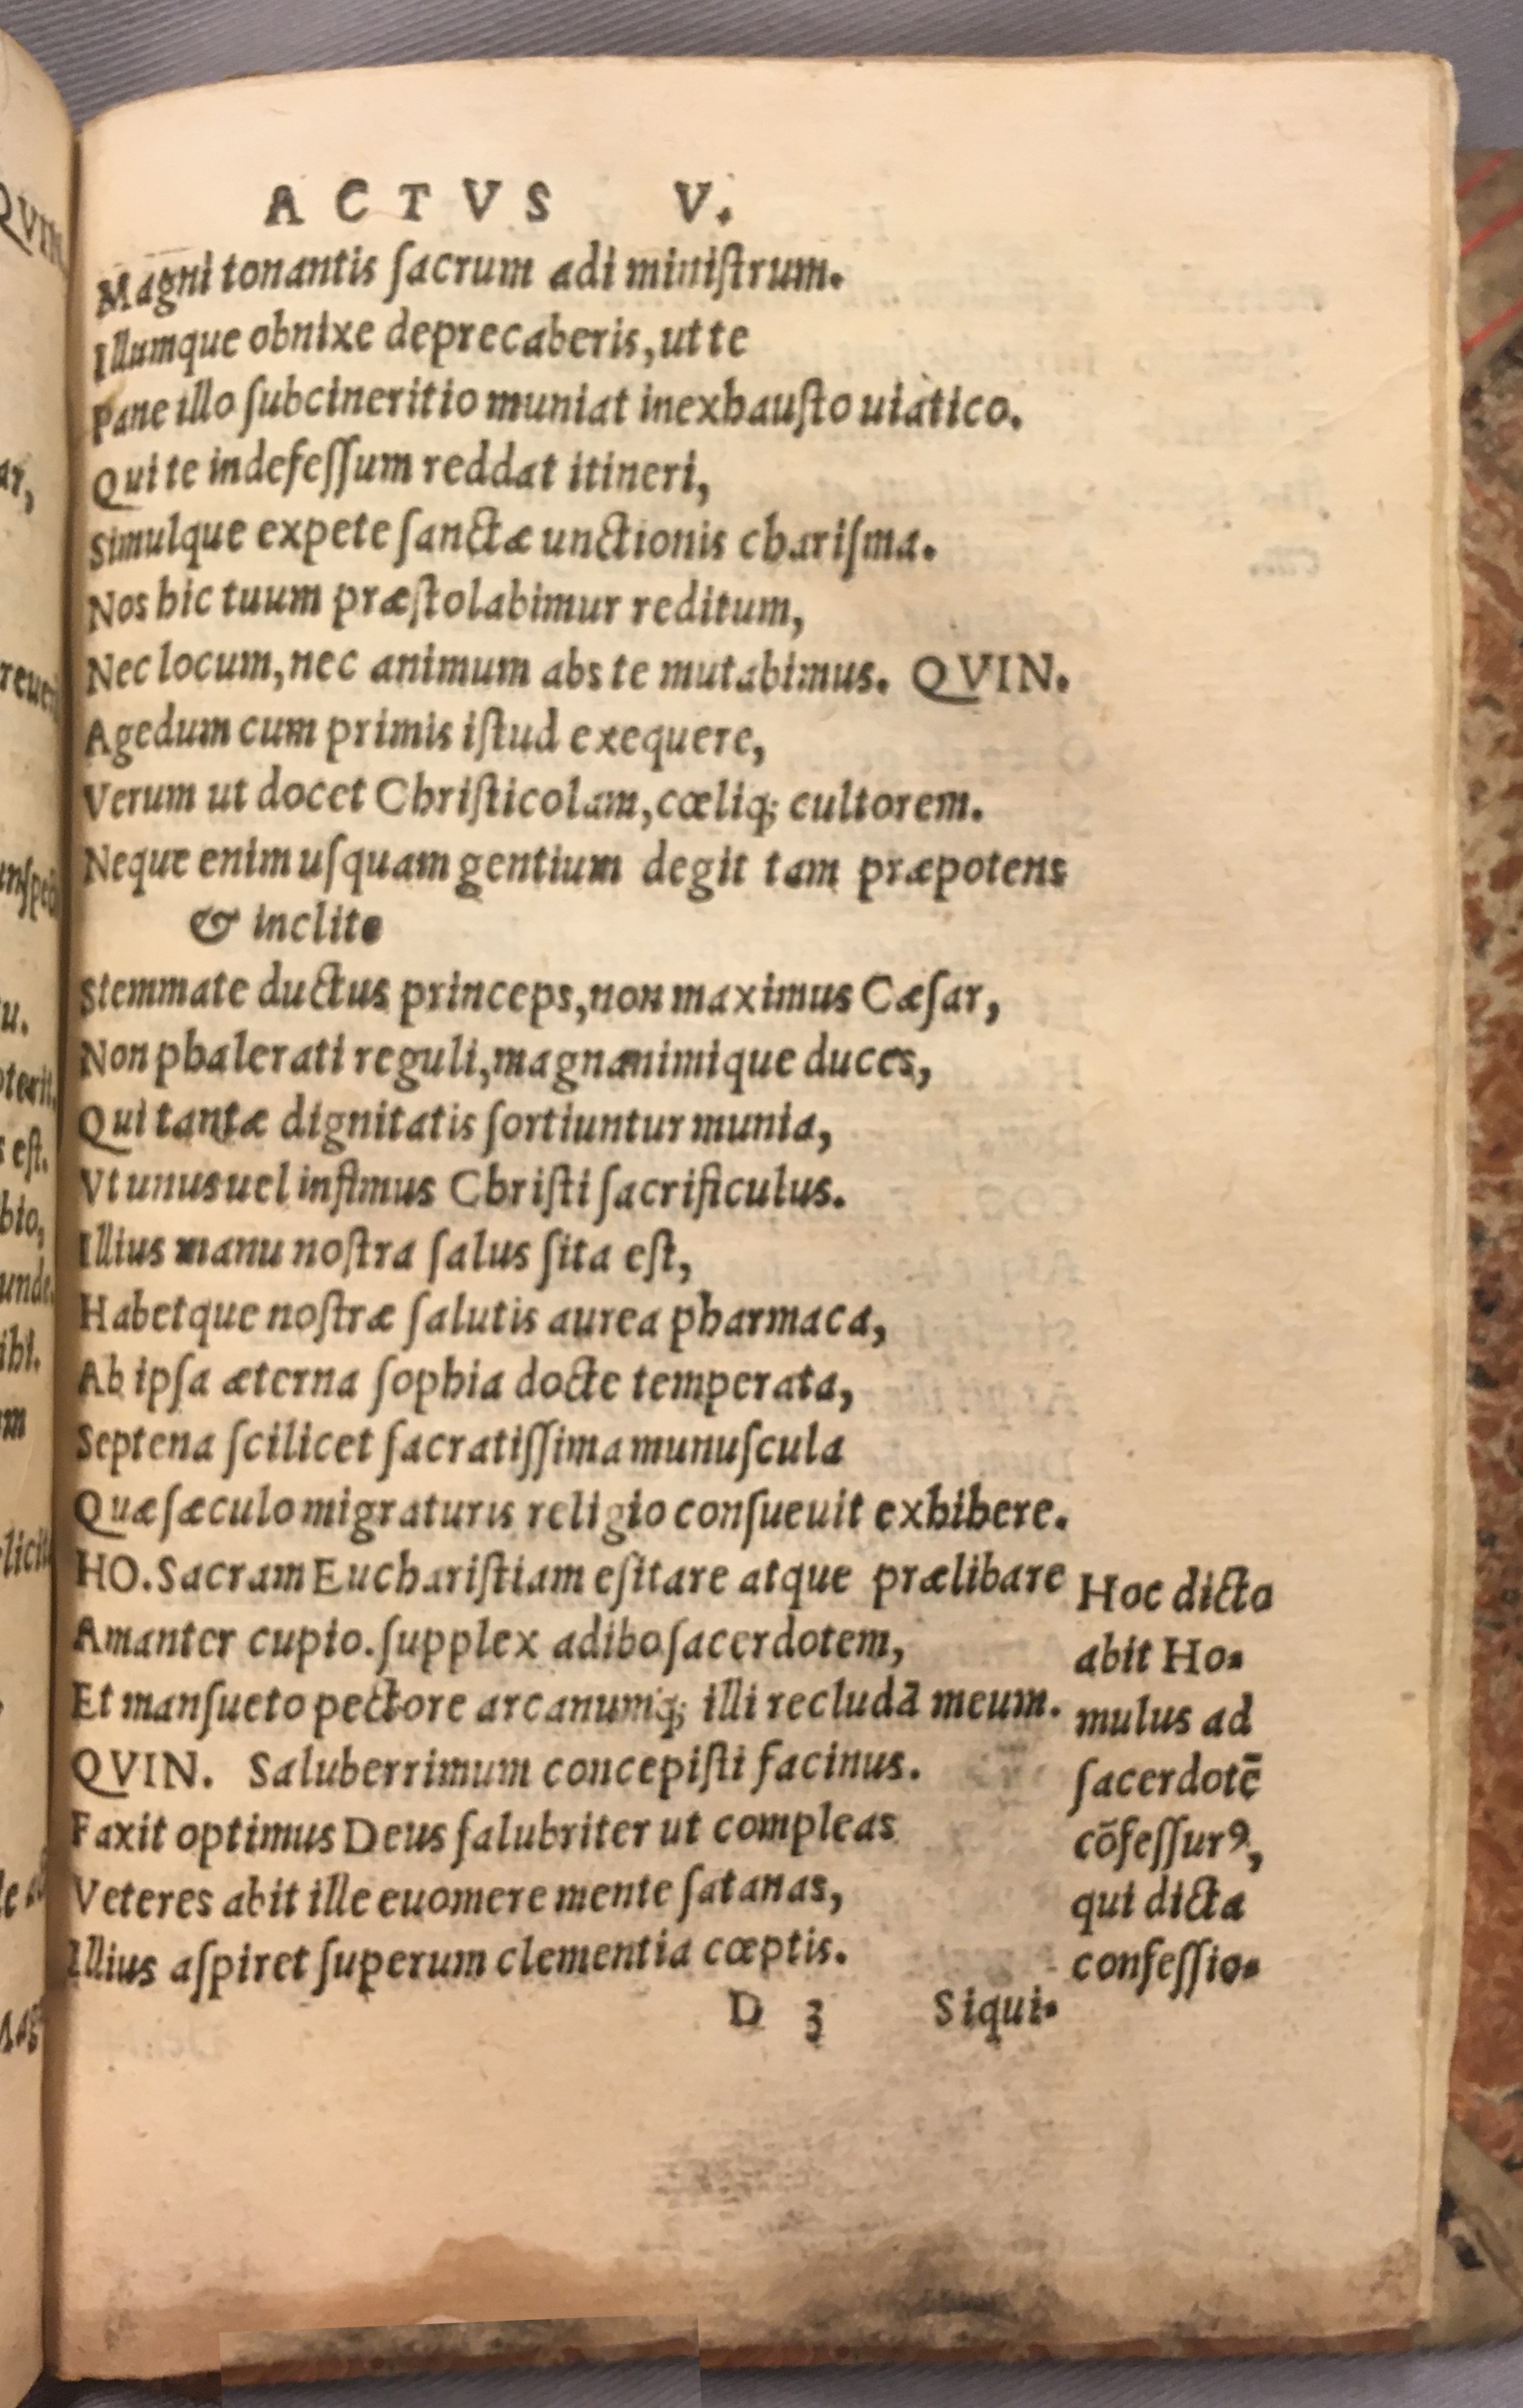 ACTVS V.
Magni tonantis ſacrum adi miniſtrum.
Illumque obnixe deprecaberis, ut te
Pane illo ſubcineritio muniat inexhauſto uiatico.
Qui te indefeſſum reddat itineri,
Simulque expete ſanctæ unctionis chariſma.
Nos hic tuum præſtolabimur reditum,
Nec locum, nec animum abs te mutabimus. QVIN.
Agedum cum primis iſtud exequere,
Verum ut docet Chriſticolam, cœliq; cultorem.
Neque enim uſquam gentium degit tam præpotens
& inclito
Stemmate ductus princeps, non maximus Cæſar,
Non phalerati reguli, magnanimique duces,
Qui tantæ dignitatis ſortiuntur munia,
Vt unus uel infimus Chriſti ſacrificulus.
Illius manu noſtra ſalus ſita eſt,
Habetque noſtræ ſalutis aurea pharmaca,
Ab ipſa æterna ſophia docte temperata,
Septena ſcilicet ſacratiſſima munuſcula
Quæ ſæculo migraturis religio conſueuit exhibere.
HO. Sacram Euchariſtiam eſitare atque prælibare
Amanter cupio. ſupplex adibo ſacerdotem,
Et manſueto pectore arcanumq; illi recludā meum.
QVIN. Saluberrimum concepiſti facinus.
Faxit optimus Deus ſalubriter ut compleas
Veteres abit ille euomere mente ſatanas,
Illius aſpiret ſuperum clementia cœptis.
Hoc dicto
abit Ho-
mulus ad
ſacerdotē
cōfeſſurꝰ,
qui dicta
confeſſio-
D 3 Siqui-